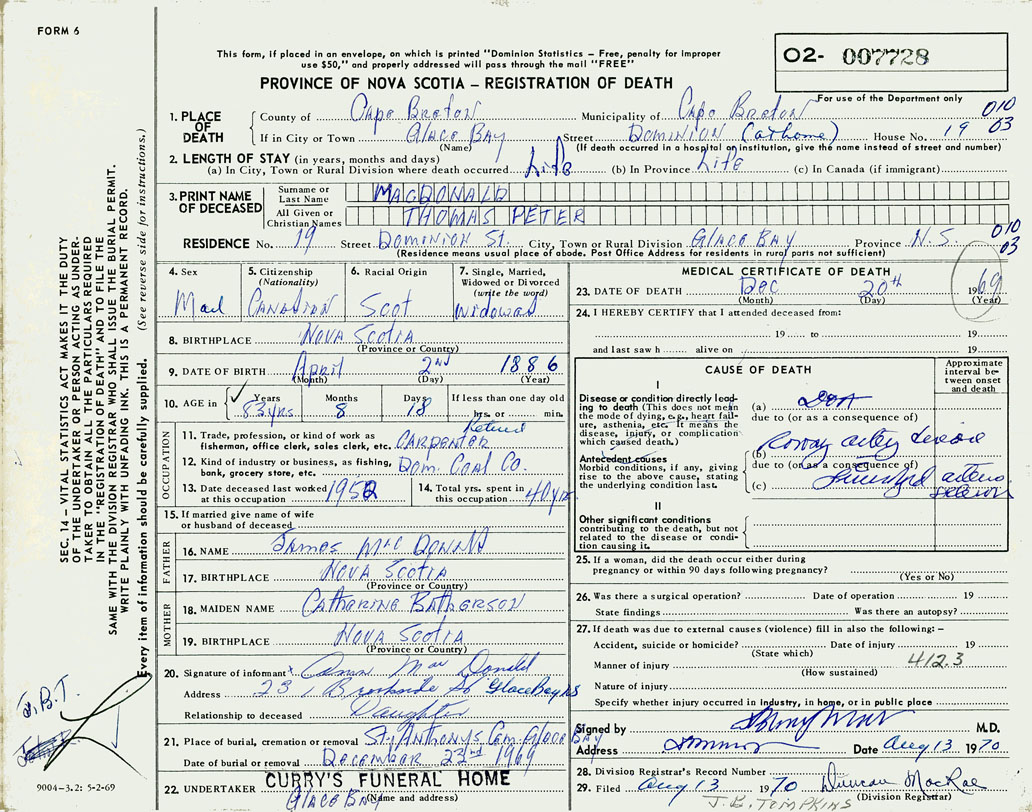 FORM 6
This form, if placed in an envelope, on which is printed "Dominion Statistics – Free, penalty for improper
use $50," and properly addressed will pass through the mail "FREE"
O2- 007728
PROVINCE OF NOVA SCOTIA – REGISTRATION OF DEATH
For use of the Department only
1. PLACE OF DEATH County of Cape Breton Municipality of Cape Breton 010
If in City or Town Glace Bay Street Dominion (at home) House No. 19 03
(Name) (If death occurred in a hospital or institution, give the name instead of street and number)
2. LENGTH OF STAY (in years, months and days)
(a) In City, Town or Rural Division where death occurred Life (b) In Province Life (c) In Canada (if immigrant)
3. PRINT NAME OF DECEASED Surname or Last Name MACDONALD
All Given or Christian Names THOMAS PETER
RESIDENCE No. 19 Street Dominion St. City, Town or Rural Division Glace Bay Province N.S. 010 03
(Residence means usual place of abode. Post Office Address for residents in rural parts not sufficient)
4. Sex 5. Citizenship (Nationality) 6. Racial Origin 7. Single, Married, Widowed or Divorced (write the word)
Mail Canadian Scot Widowed
8. BIRTHPLACE Nova Scotia
(Province or Country)
9. DATE OF BIRTH April 2nd 1886
(Month) (Day) (Year)
10. AGE in Years Months Days If less than one day old
83 yrs. 8 18 hrs. or min.
OCCUPATION
Retired
11. Trade, profession, or kind of work as
fisherman, office clerk, sales clerk, etc. Carpenter
12. Kind of industry or business, as fishing,
bank, grocery store, etc. Dom. Coal Co.
13. Date deceased last worked
at this occupation 1952
14. Total yrs. spent in
this occupation 40 yrs
15. If married give name of wife
or husband of deceased
FATHER
16. NAME James MacDonald
17. BIRTHPLACE Nova Scotia
(Province or Country)
MOTHER
18. MAIDEN NAME Catharine Batherson
19. BIRTHPLACE Nova Scotia
(Province or Country)
20. Signature of informant Mac Donald
Address 23 Brookside St Glace Bay NS
Relationship to deceased Daughter
21. Place of burial, cremation or removal St. Anthonys Cem. Glace Bay
Date of burial or removal December 22nd 1969
22. UNDERTAKER CURRY'S FUNERAL HOME
Glace Bay
(Name and address)
MEDICAL CERTIFICATE OF DEATH
23. DATE OF DEATH Dec 20th 1969
(Month) (Day) (Year)
24. I HEREBY CERTIFY that I attended deceased from:
19 to 19
and last saw h alive on 19
CAUSE OF DEATH
Approximate interval between onset and death
I
Disease or condition directly leading
to death (This does not mean
the mode of dying, e.g., heart failure,
asthenia, etc. It means the
disease, injury, or complication
which caused death.)
(a) DOA
due to (or as a consequence of)
Antecedent causes
Morbid conditions, if any, giving
rise to the above cause, stating
the underlying condition last.
(b) artery disease
due to (or as a consequence of)
(c)
II
Other significant conditions
contributing to the death, but not
related to the disease or condition
causing it.
25. If a woman, did the death occur either during
pregnancy or within 90 days following pregnancy?
(Yes or No)
26. Was there a surgical operation? Date of operation 19
State findings Was there an autopsy?
27. If death was due to external causes (violence) fill in also the following: –
Accident, suicide or homicide? Date of injury 19
(State which)
Manner of injury 412.3
(How sustained)
Nature of injury
Specify whether injury occurred in industry, in home, or in public place
Signed by M.D.
Address Date Aug 13 1970
28. Division Registrar's Record Number
29. Filed Aug 13 1970 Duncan MacRae
(Division Registrar)
J. B. TOMPKINS
SEC. 14 – VITAL STATISTICS ACT MAKES IT THE DUTY
OF THE UNDERTAKER OR PERSON ACTING AS UNDERTAKER
TO OBTAIN ALL THE PARTICULARS REQUIRED
IN THE "REGISTRATION OF DEATH" AND TO FILE THE
SAME WITH THE DIVISION REGISTRAR WHO SHALL ISSUE THE BURIAL PERMIT.
WRITE PLAINLY WITH UNFADING INK. THIS IS A PERMANENT RECORD.
Every item of information should be carefully supplied. (See reverse side for instructions.)
J.B.T.
9004–3.2: 5-2-69